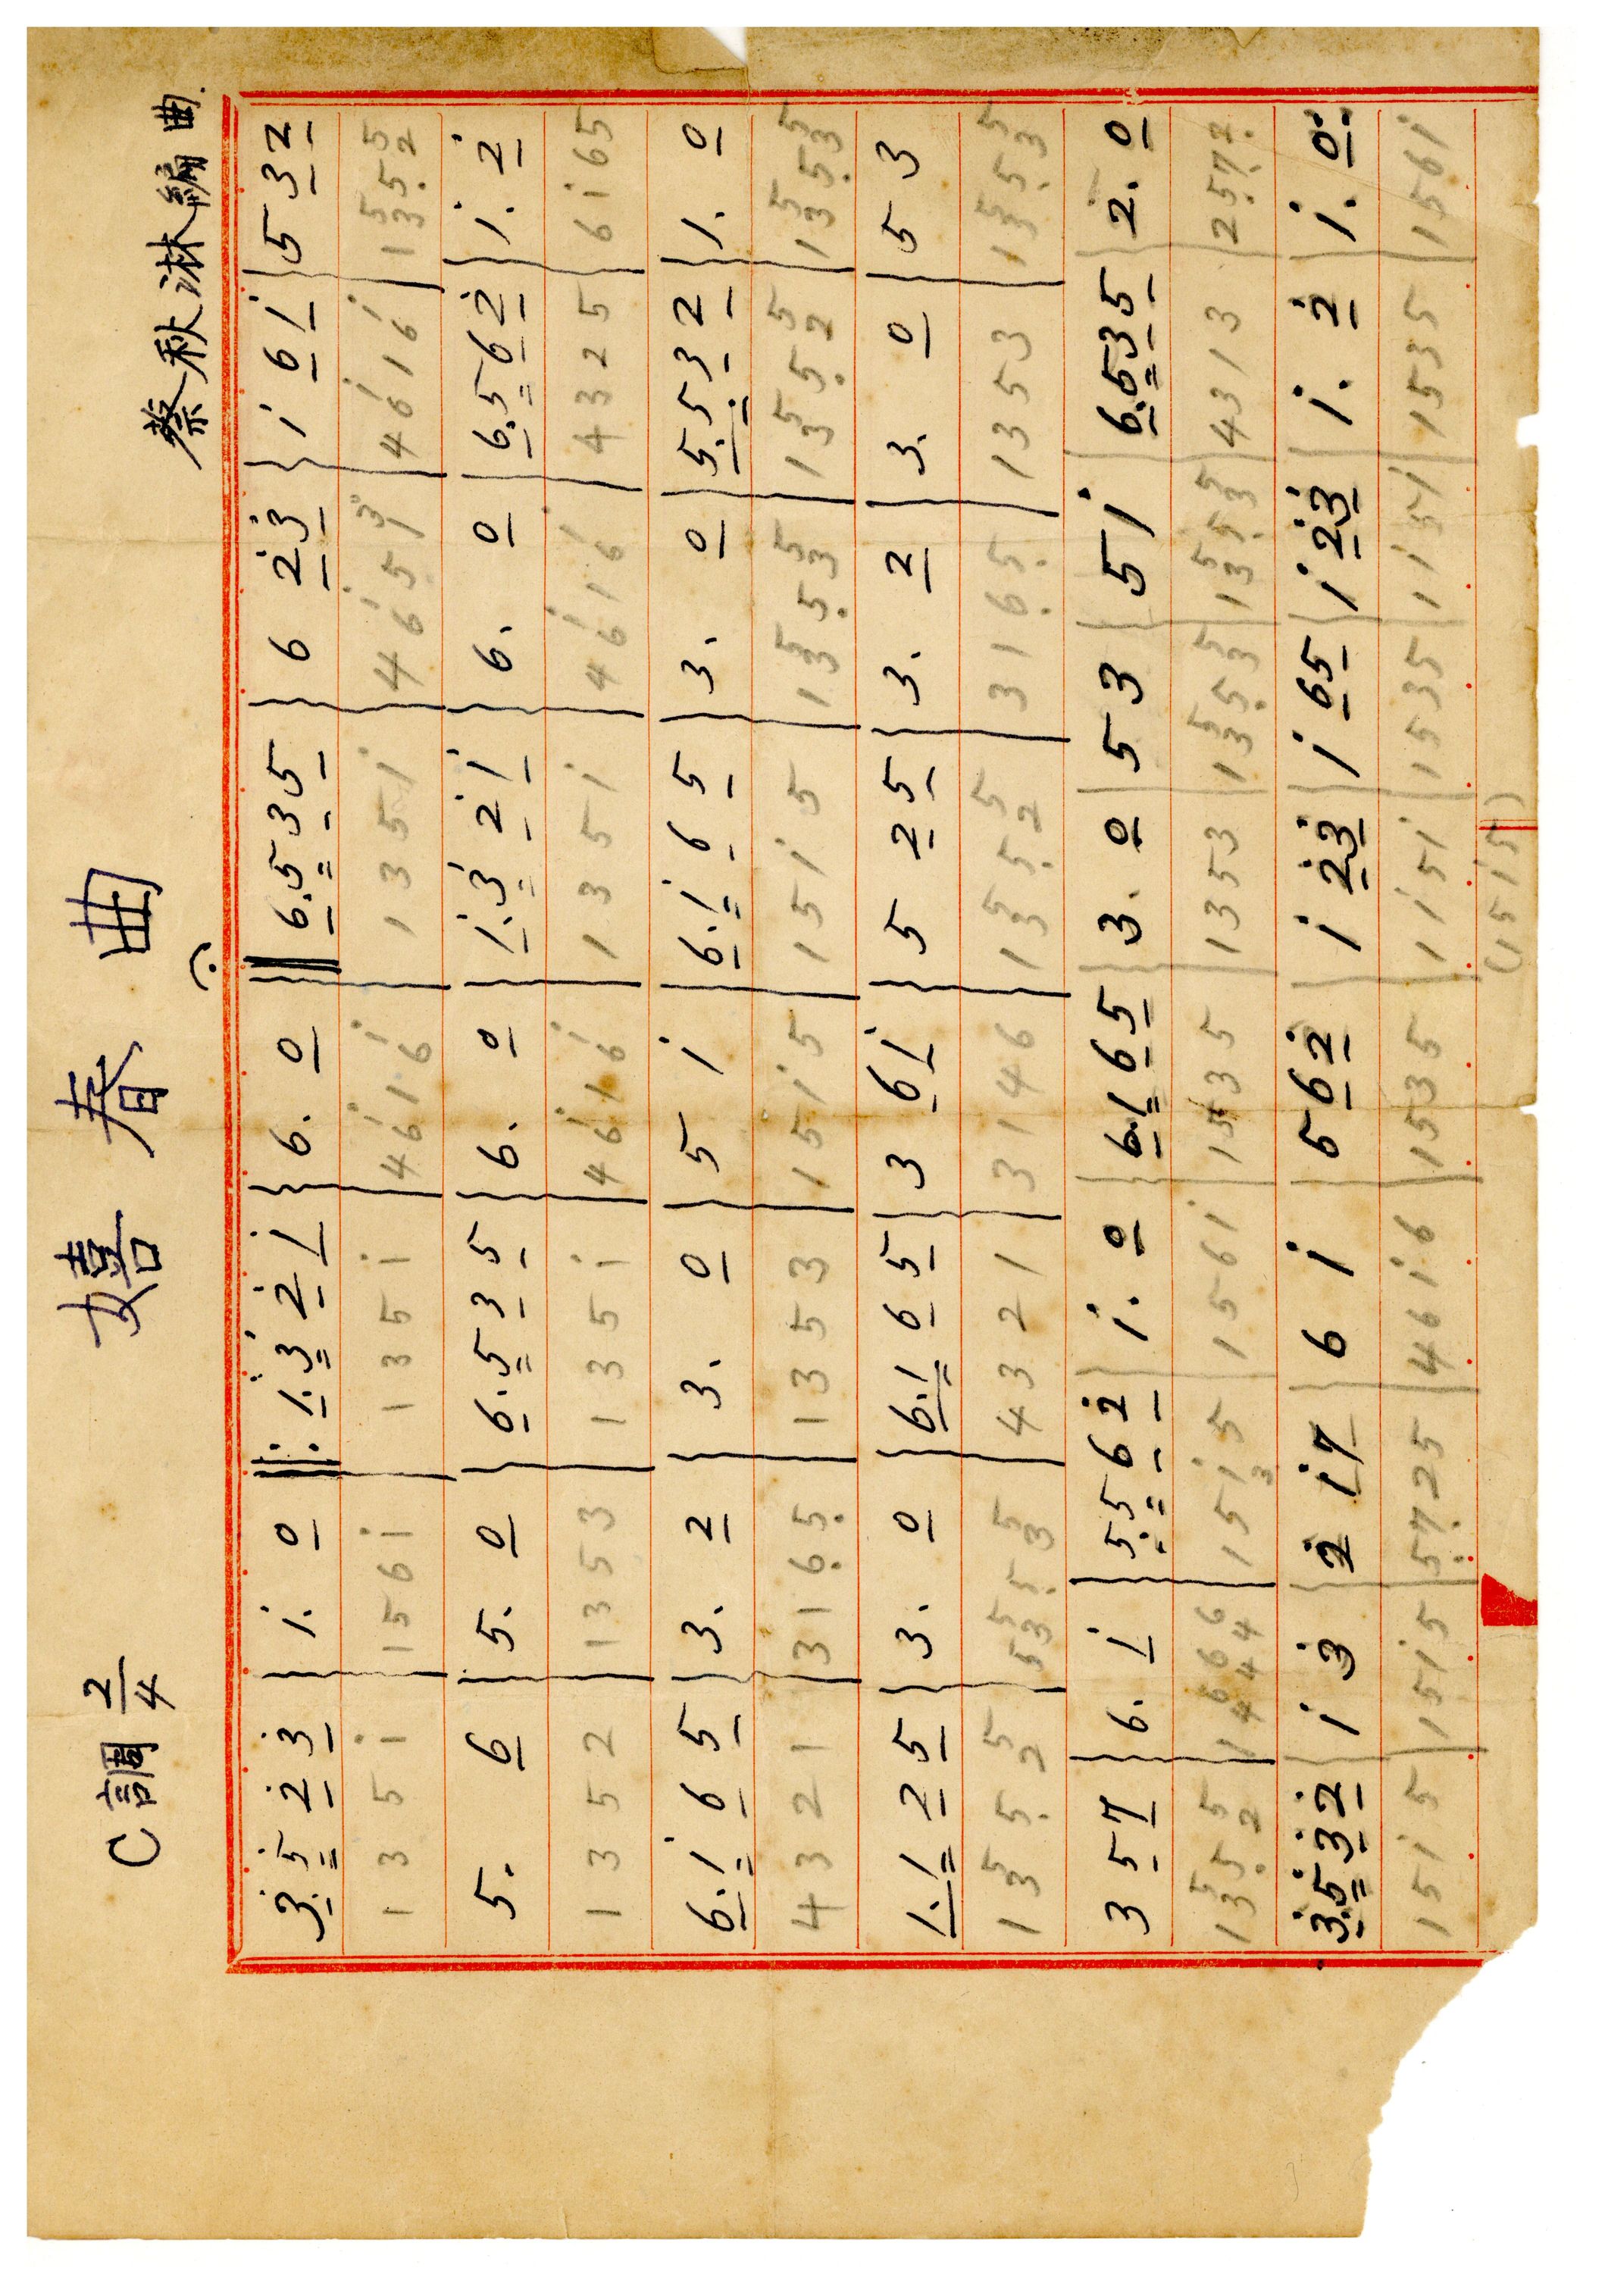 嬉春曲
C調 2/4
蔡秋淋編曲.
3̇.5̇ 2̇ 3̇ | 1̇. 0 ‖: 1̇.3̇ 2̇ 1̇ | 6. 0 ‖ 6.5 3 5 | 6 2̇3̇ | 1̇ 6 1̇ | 5 3 2
1 3 5 1̇ | 1 5 6 1̇ | 1 3 5 1̇ | 4 61̇ 1 61̇ | 1 3 5 1̇ | 4 61̇ 5 1̇3̇ | 4 61̇ 1 61̇ | 1 35 5̣ 25
5. 6 | 5. 0 | 6.5 3 5 | 6. 0 | 1̇.3̇ 2̇ 1̇ | 6. 0 | 6.5 6 2̇ | 1̇. 2̇
1 3 5 2 | 1 3 5 3 | 1 3 5 1̇ | 4 61̇ 1 61̇ | 1 3 5 1̇ | 4 61̇ 1 61̇ | 4 3 2 5 | 6 1̇ 6 5
6.1̇ 6 5 | 3. 2 | 3. 0 | 5 1̇ | 6.1̇ 6 5 | 3. 0 | 5.5 3 2 | 1. 0
4 3 2 1 | 3 1 6̣ 5̣ | 1 3 5 3 | 1 5 1̇ 5 | 1 5 1̇ 5 | 1 35 5̣ 35 | 1 35 5̣ 25 | 1 35 5̣ 35
1.1 2 5 | 3. 0 | 6.1̇ 6 5 | 3 6 1̇ | 5 2 5 | 3. 2 | 3. 0 | 5 3
1 35 5̣ 25 | 5 35 5̣ 35 | 4 3 2 1 | 3 1 4 6 | 1 35 5̣ 25 | 3 1 6̣ 5̣ | 1 3 5 3 | 1 35 5̣ 35
3 5 7 | 6. 1̇ | 5.5 6 2̇ | 1̇. 0 | 6.1̇ 6 5 | 3. 0 | 5 3 | 5 1̇ | 6.5 3 5 | 2. 0
1 35 5̣ 25 | 1 46 46 46 | 1 5 1̇ 5 | 1 5 6 1̇ | 1 5 3 5 | 1 3 5 3 | 1 35 5̣ 35 | 1 35 5̣ 35 | 4 3 1 3 | 2 5̣ 7̣ 2
3̇.5̇ 3̇ 2̇ | 1̇ 3̇ | 2̇ 1̇7 | 6 1̇ | 5 6 2̇ | 1̇ 2̇3̇ | 1̇ 65 | 1̇ 2̇3̇ | 1̇. 2̇ | 1̇. 0 :
1 5 1̇ 5 | 1 5 1̇ 5 | 5̣ 7̣ 2 5 | 4 6 1̇ 6 | 1 5 3 5 | 1 1̇ 5 1̇ | 1 5 3 5 | 1 1̇ 5 1̇ | 1 5 3 5 | 1 5 6 1̇
(1 5 1̇ 5)